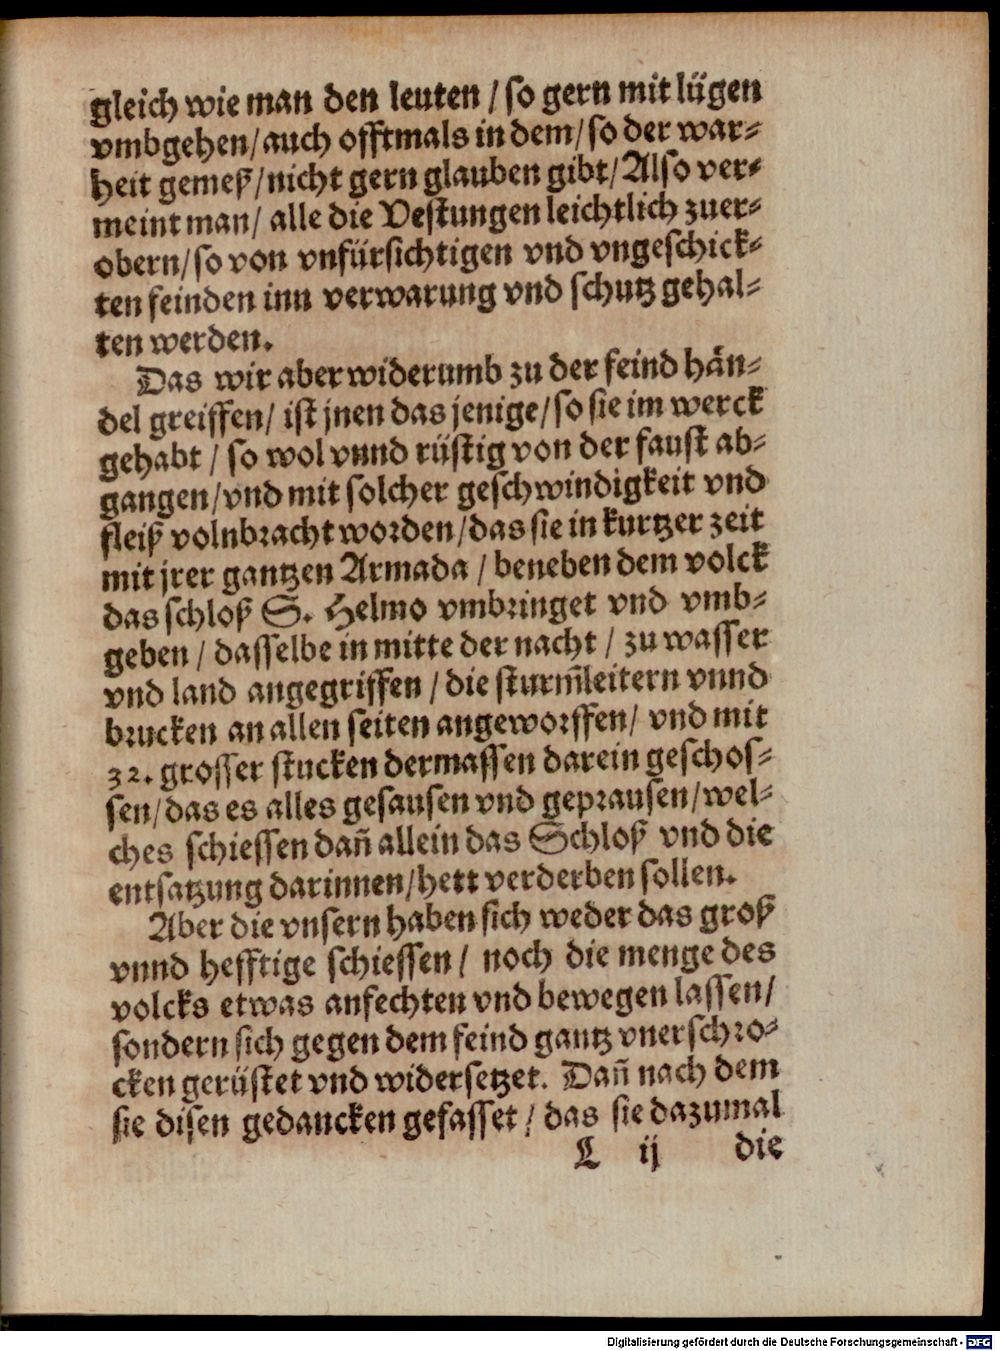 gleich wie man den leuten / so gern mit lügen
vmbgehen/auch offtmals in dem/so der war⸗
heit gemeß/nicht gern glauben gibt/Also ver⸗
meint man/ alle die Vestungen leichtlich zuer⸗
obern/so von vnfürsichtigen vnd vngeschick⸗
ten feinden inn verwarung vnd schutz gehal⸗
ten werden.
Das wir aber widerumb zu der feind hän⸗
del greiffen/ ist jnen das jenige/so sie im werck
gehabt / so wol vnnd rüstig von der faust ab⸗
gangen/vnd mit solcher geschwindigkeit vnd
fleiß volnbracht worden/das sie in kurtzer zeit
mit jrer gantzen Armada / beneben dem volck
das schloß S. Helmo vmbringet vnd vmb⸗
geben / dasselbe in mitte der nacht / zu wasser
vnd land angegriffen / die sturm̃leitern vnnd
brucken an allen seiten angeworffen/ vnd mit
32. grosser stucken dermassen darein geschos⸗
sen/das es alles gesausen vnd geprausen/wel⸗
ches schiessen dañ allein das Schloß vnd die
entsatzung darinnen/hett verderben sollen.
Aber die vnsern haben sich weder das groß
vnnd hefftige schiessen / noch die menge des
volcks etwas anfechten vnd bewegen lassen/
sondern sich gegen dem feind gantz vnerschro⸗
cken gerüstet vnd widersetzet. Dañ nach dem
sie disen gedancken gefasset / das sie dazumal
L ij die
Digitalisierung gefördert durch die Deutsche Forschungsgemeinschaft - DFG